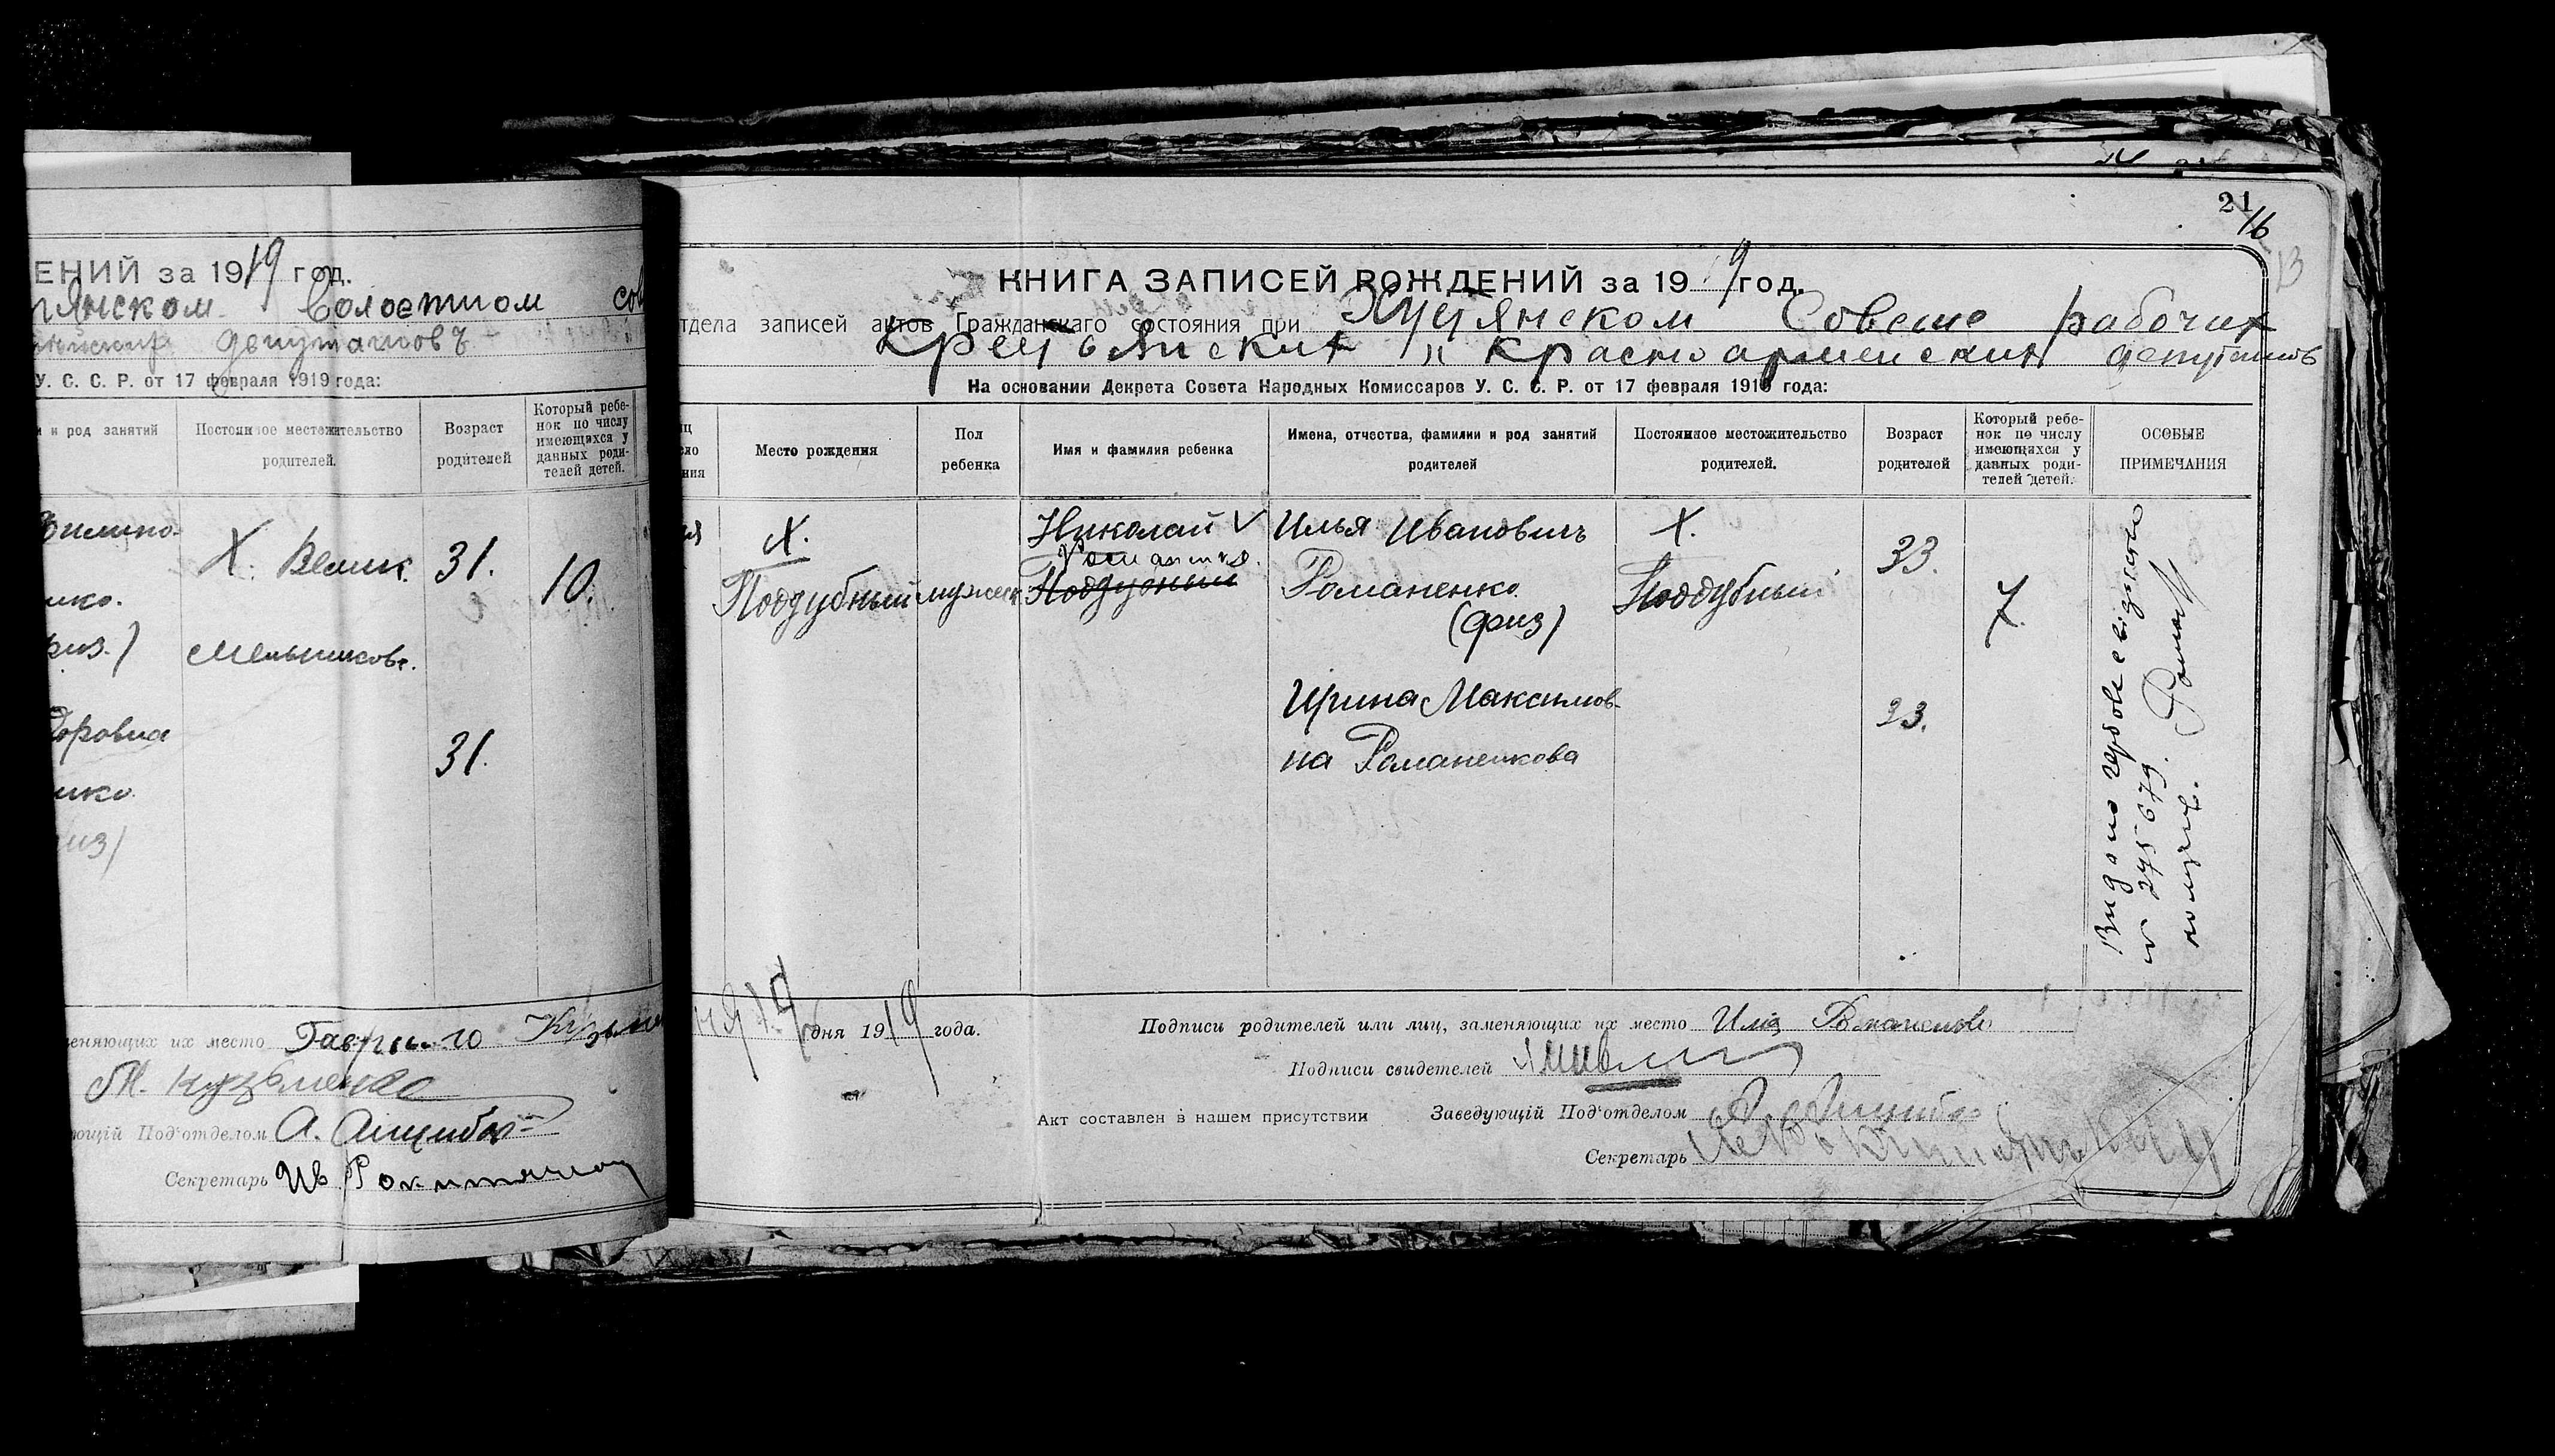 ЕНИЙ за 1919 год.
янском Волостном сов
депутатовъ
У. С. С. Р. от 17 февраля 1919 года:
и род занятий
Постоянное местожительство
родителей.
Возраст
родителей
Который ребе-
нок по числу
имеющихся у
данных роди-
телей детей.
Х. Велик.
31.
10.
нко.
физ.)
Мельников.
доровна
31.
нко
из)
меняющих их место Гаврило Кузьмен
М. Кузьменко
ющій Под'отделом А.
Секретарь Ив
21
16
13
КНИГА ЗАПИСЕЙ РОЖДЕНИЙ за 1919 год.
тдела записей актов Гражданскаго состояния при Хуцянском Совете рабочих
Крестьянских и красноармейских депутатов
На основании Декрета Совета Народных Комиссаров У. С. С. Р. от 17 февраля 1919 года:
Место рождения
Пол
ребенка
Имя и фамилия ребенка
Имена, отчества, фамилии и род занятий
родителей
Постоянное местожительство
родителей.
Возраст
родителей
Который ребе-
нок по числу
имеющихся у
данных роди-
телей детей.
ОСОБЫЕ
ПРИМЕЧАНИЯ
х.
Поддубный
мужск
Николай V
Романенко
Поддубный
Илья Иванович
Романенко
(физ)
Ирина Максимов-
на Романенкова
х.
Поддубный
33.
23.
7.
Видано
№ 275679.
дня 1919 года.
Подписи родителей или лиц, заменяющих их место Илья Романенко
Подписи свидетелей
Акт составлен в нашем присутствии Заведующій Под'отделом
Секретарь